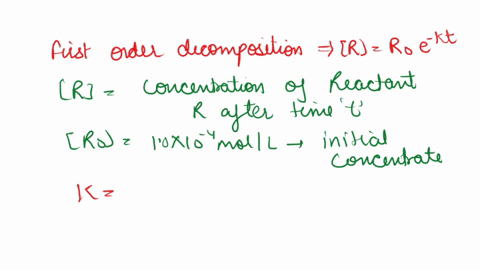 first order decomposition ⇒ [R] = R₀ e^-kt
[R] = Concentration of Reactant
R after time 't'
[R₀) = 1.0X10⁻⁴ mol/L → initial
Concentrate
K =